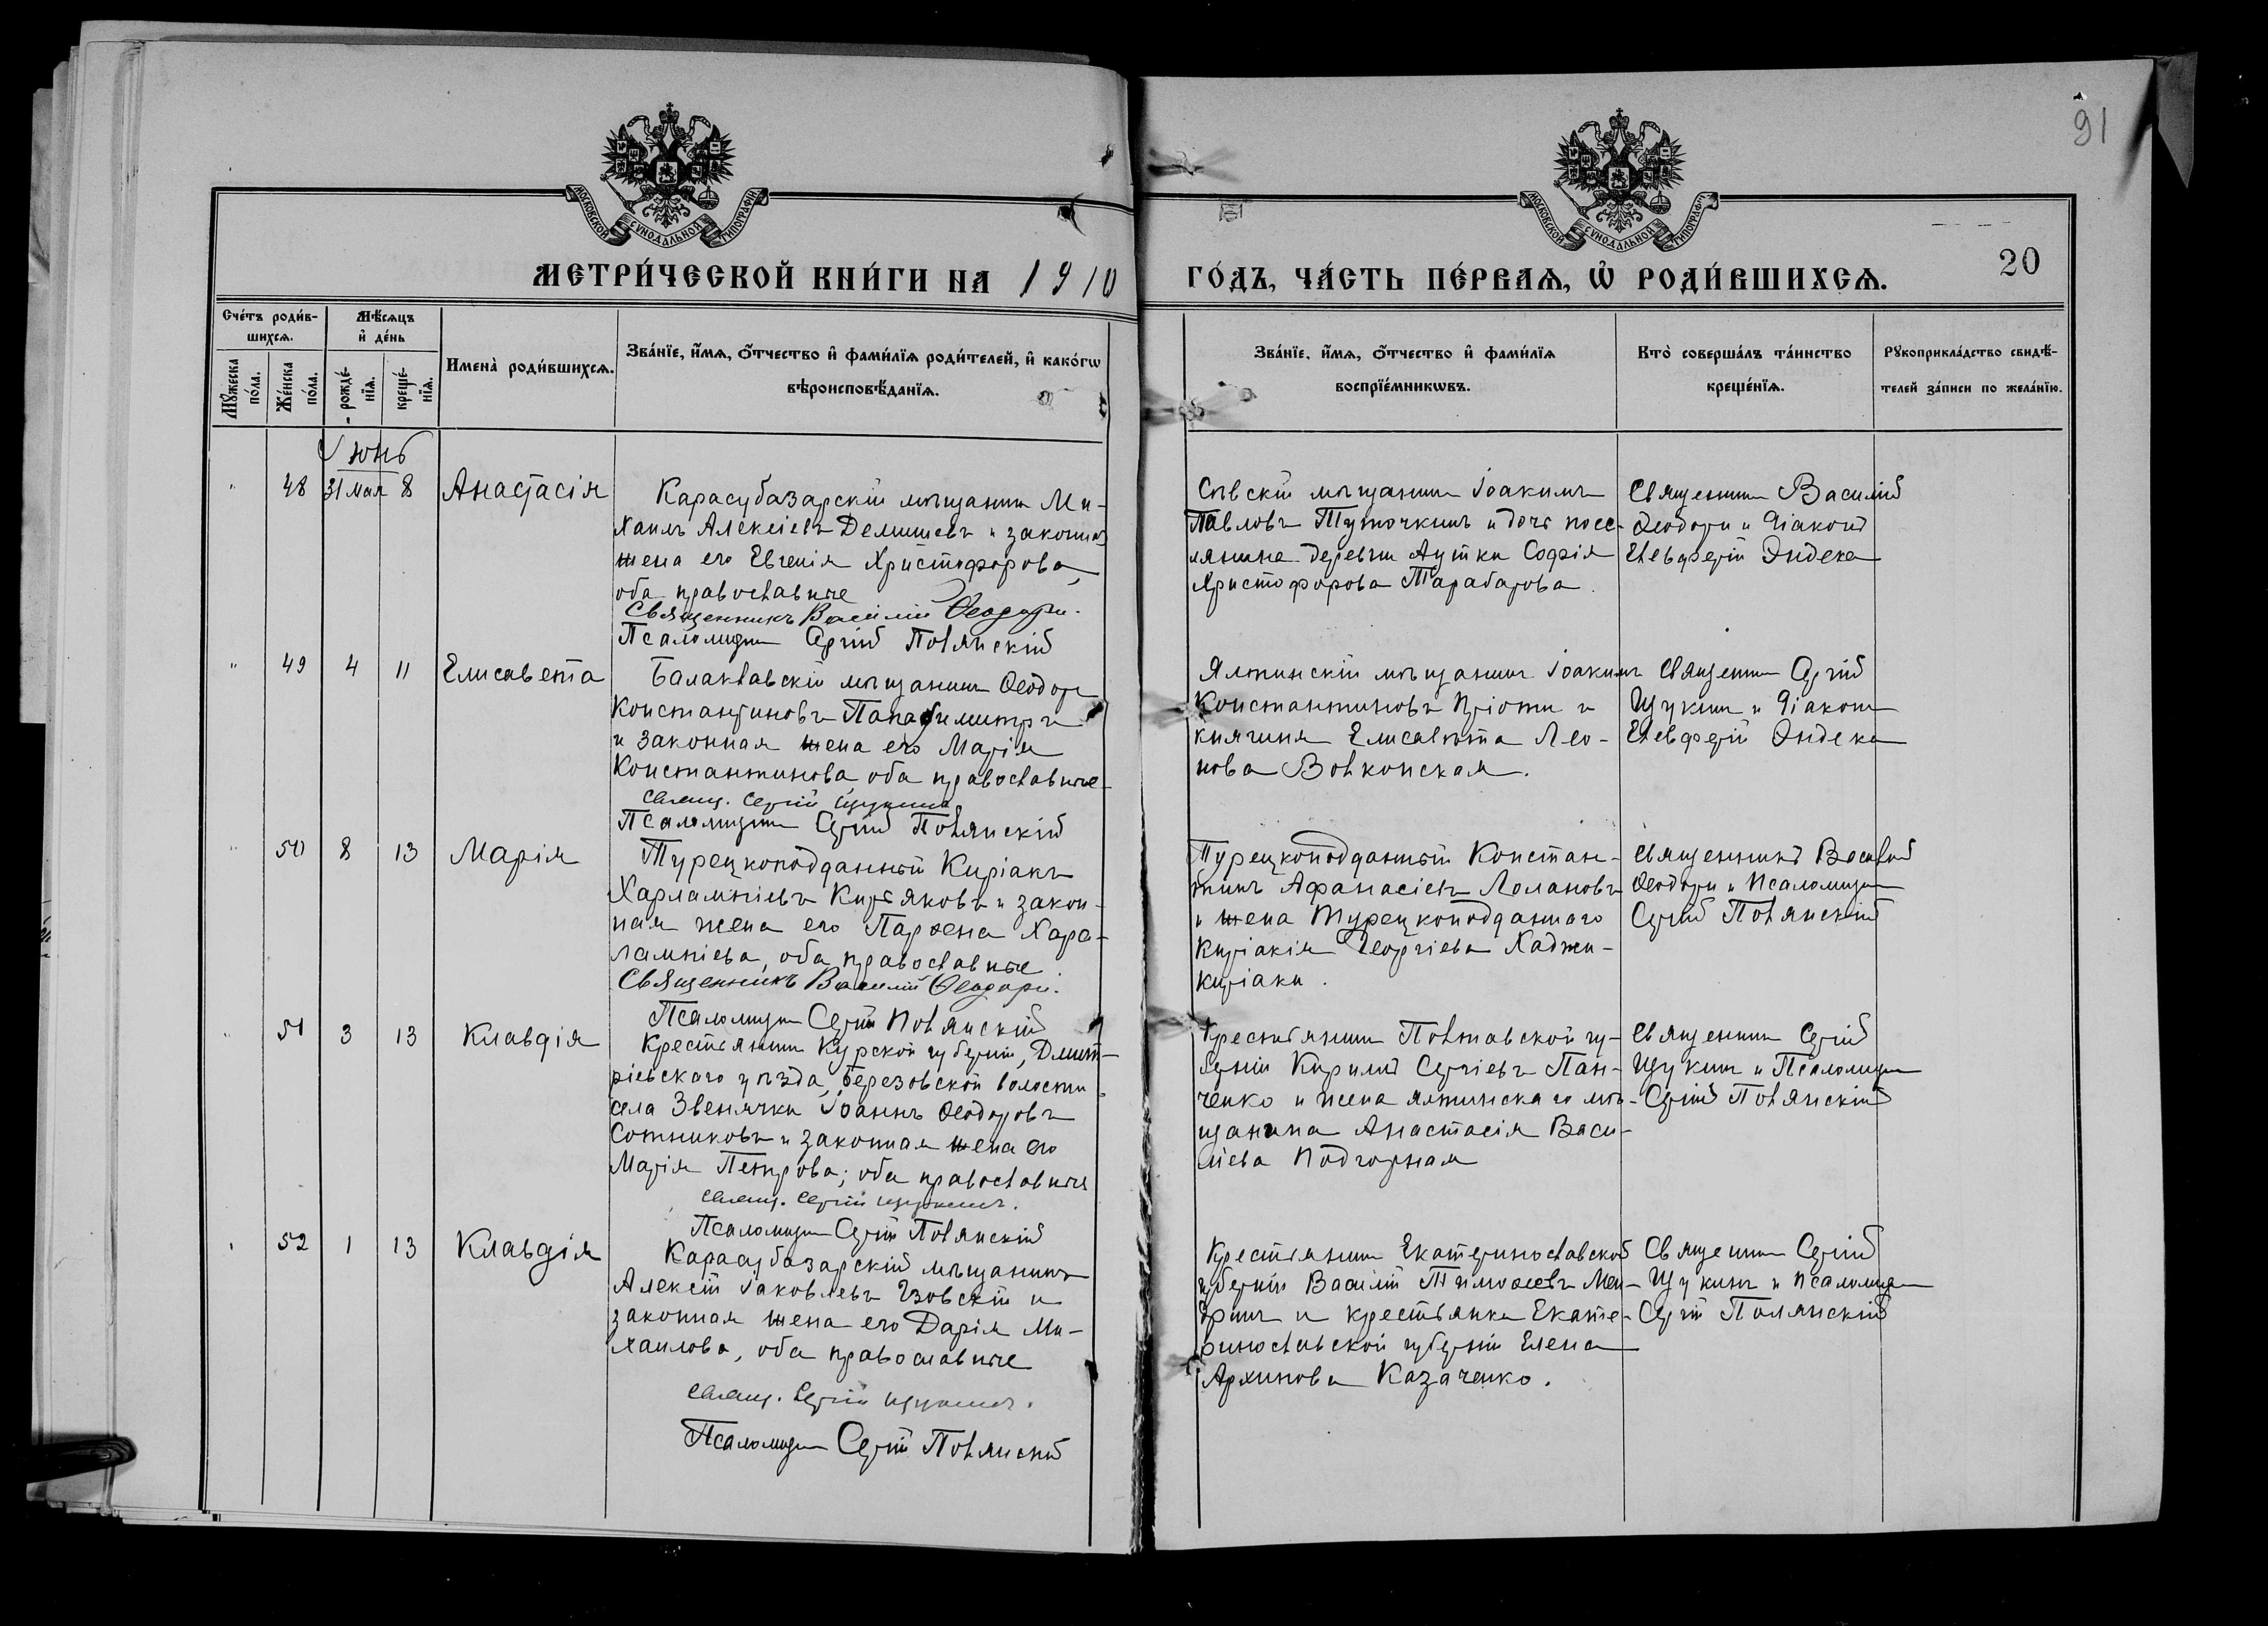 91
МОСКОВСКОЙ СѴНОДАЛЬНОЙ ТИПОГРАФІИ
МОСКОВСКОЙ СѴНОДАЛЬНОЙ ТИПОГРАФІИ
20
МЕТРИ́ЧЕСКОЙ КНИ́ГИ НА 1910 ГО́ДЪ, ЧА́СТЬ ПЕ́РВАѦ, Ѡ҆ РОДИ́ВШИХСѦ.
Сче́тъ роди́в-
шихсѧ.
Мѣ́сѧцъ
и҆ де́нь
Мꙋ́жеска
по́ла.
Же́нска
по́ла.
рожде́-
нїѧ.
креще́-
нїѧ.
Имена̀ роди́вшихсѧ.
Зва́нїе, и҆́мѧ, ѻ҆́тчество и҆ фами́лїѧ роди́телей, и҆ како́гѡ
вѣроисповѣ́данїѧ.
Зва́нїе, и҆́мѧ, ѻ҆́тчество и҆ фами́лїѧ
воспрїе́мникѡвъ.
Кто̀ соверша́лъ та́инство
креще́нїѧ.
Рꙋкоприкла́дство свидѣ́-
телей за́писи по жела́нїю.
Іюнь
" 48 31 мая 8 Анастасія
Карасубазарскій мѣщанинъ Ми-
хаилъ Алексіевъ Демишевъ и законная
жена его Евгенія Христофорова,
оба православные
Священникъ Василій Ѳеодори.
Псаломщикъ Сергій Полянскій
Сѣвскій мѣщанинъ Іоакимъ
Павловъ Туточкинъ и дочь посе-
лянина деревни Аутки Софія
Христофорова Тарабарова.
Священникъ Василій
Ѳеодори и діаконъ
Елевферій Эндека
" 49 4 11 Елисавета
Балаклавскій мѣщанинъ Ѳеодоръ
Константиновъ Пападимитръ
и законная жена его Марія
Константинова, оба православные
Свящ. Сергій Щукинъ
Псаломщикъ Сергій Полянскій
Ялтинскій мѣщанинъ Іоакимъ
Константиновъ и
княгиня Елисавета Лео-
нова Волконская.
Священникъ Сергій
Щукинъ и діаконъ
Елевферій Эндека
" 50 8 13 Марія
Турецкоподданный Киріакъ
Харлампіевъ Кирьяковъ и закон-
ная жена его Парѳена Хара-
лампіева, оба православные
Священникъ Василій Ѳеодори.
Псаломщикъ Сергій Полянскій
Турецкоподданный Констан-
тинъ Афанасіевъ Лолановъ
и жена турецкоподданнаго
Киріакія Георгіева Хаджи-
киріаки.
Священникъ Василій
Ѳеодори и Псаломщикъ
Сергій Полянскій
" 51 3 13 Клавдія
Крестьянинъ Курской губерніи, Дмит-
ріевскаго уѣзда, Березовской волости
села Звенячки Іоаннъ Ѳеодоровъ
Сотниковъ и законная жена его
Марія Петрова; оба православные
Свящ. Сергій Щукинъ.
Псаломщикъ Сергій Полянскій
Крестьянинъ Полтавской гу-
берніи Кириллъ Сергіевъ Пан-
ченко и жена ялтинскаго мѣ-
щанина Анастасія Васи-
ліева Подгорная
Священникъ Сергій
Щукинъ и Псаломщикъ
Сергій Полянскій
" 52 1 13 Клавдія
Карасубазарскій мѣщанинъ
Алексій Іаковлевъ Езовскій и
законная жена его Дарія Ми-
хаилова, оба православные
Свящ. Сергій Щукинъ.
Псаломщикъ Сергій Полянскій
Крестьянинъ Екатеринославской
губерніи Василій Тимоѳеевъ
и крестьянка Екате-
ринославской губерніи Елена
Архипова Казаченко.
Священникъ Сергій
Щукинъ и псаломщикъ
Сергій Полянскій